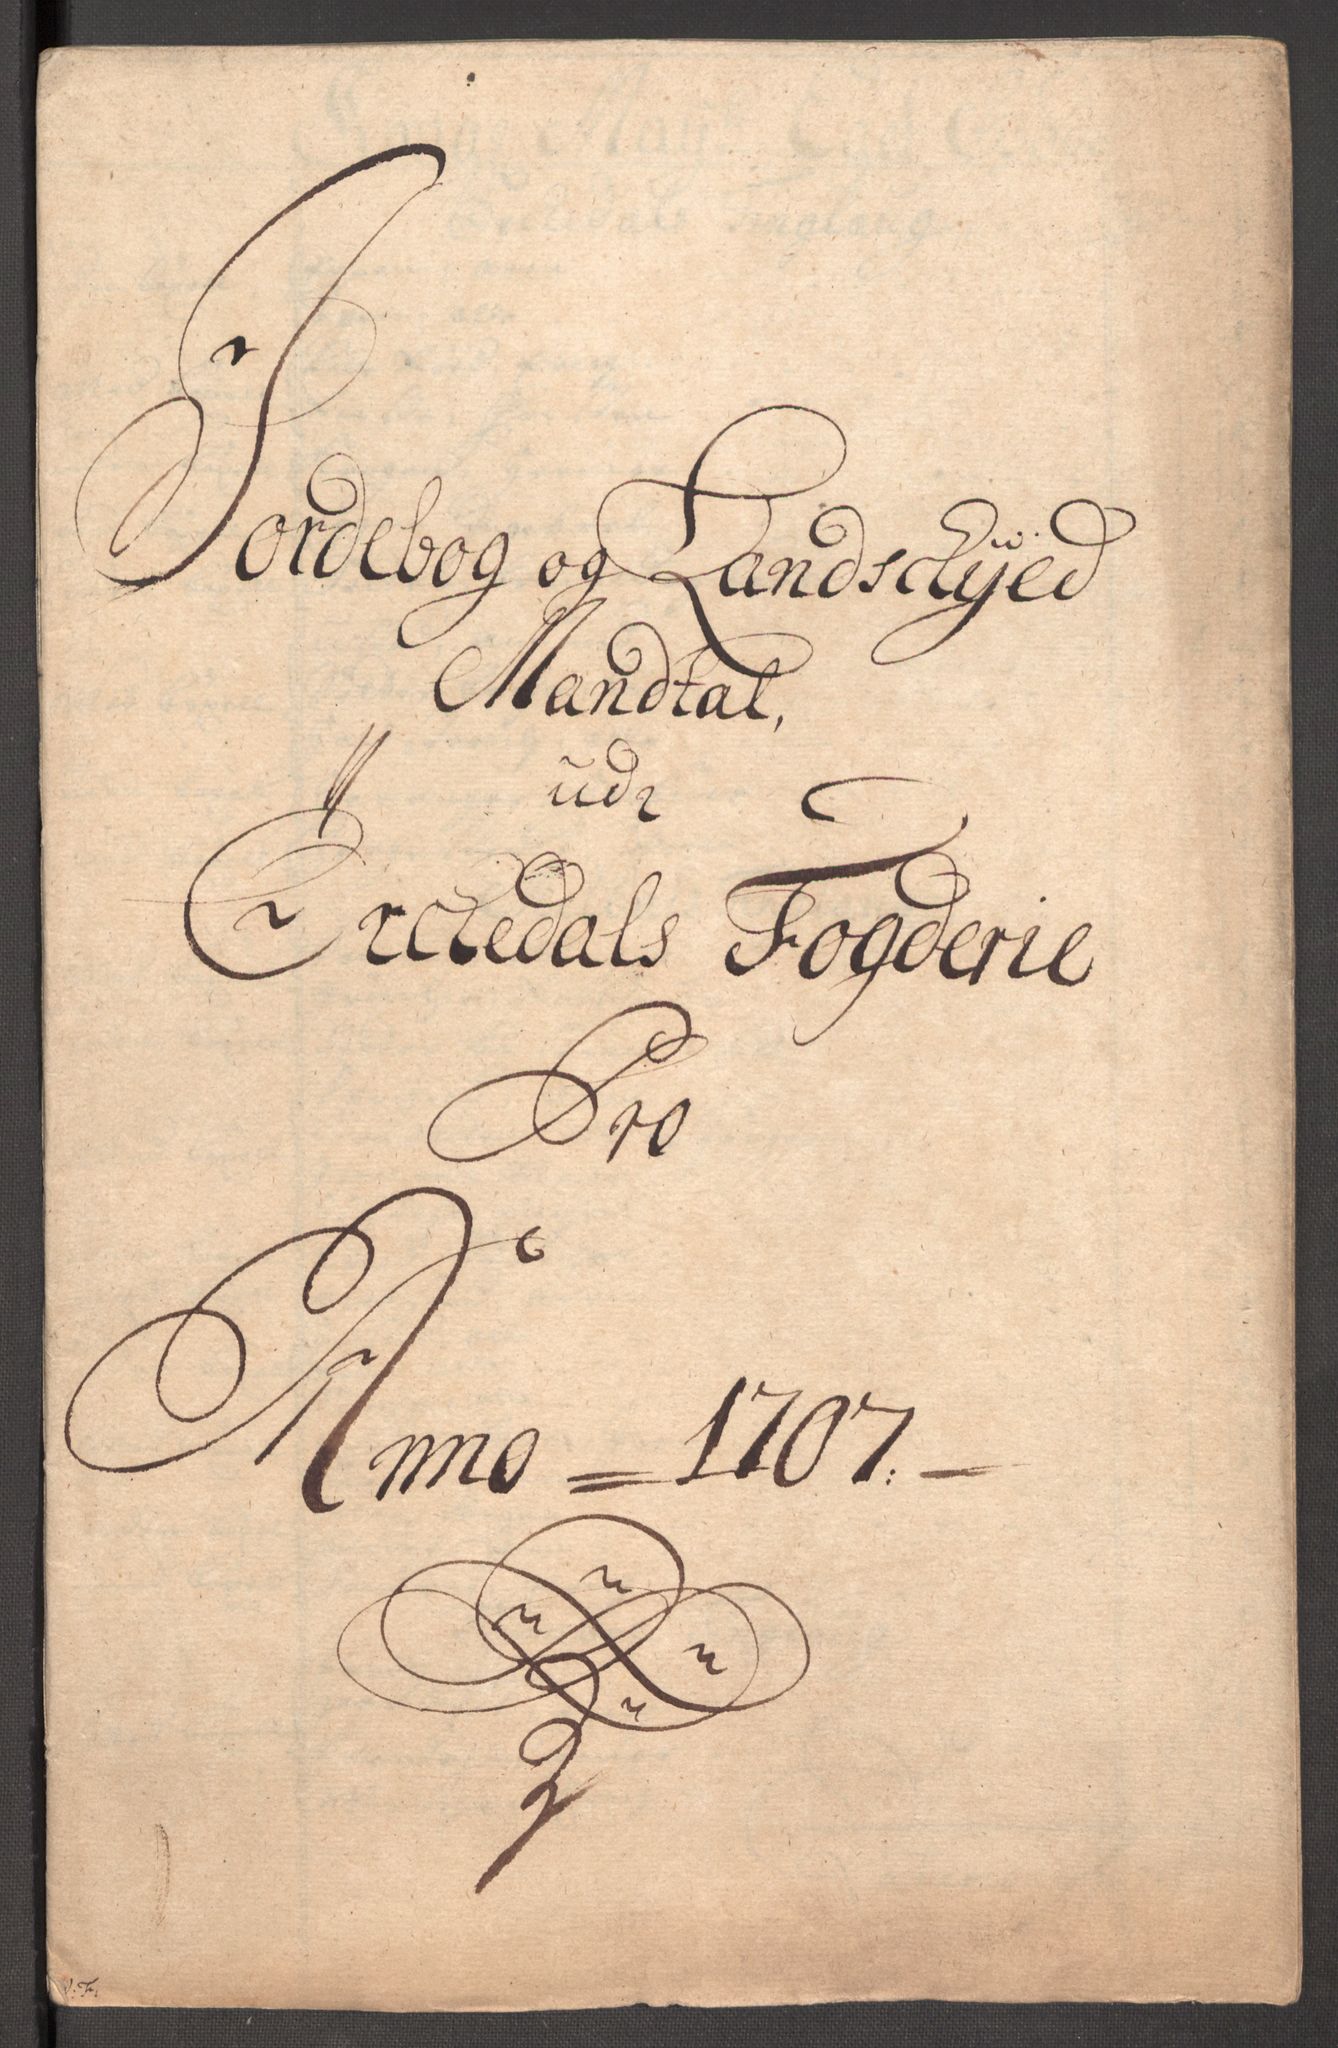 Jordebog og Landschÿed
Mandtal,
udi
Orckedals Fogderie
Pro
Anno = 1707. –